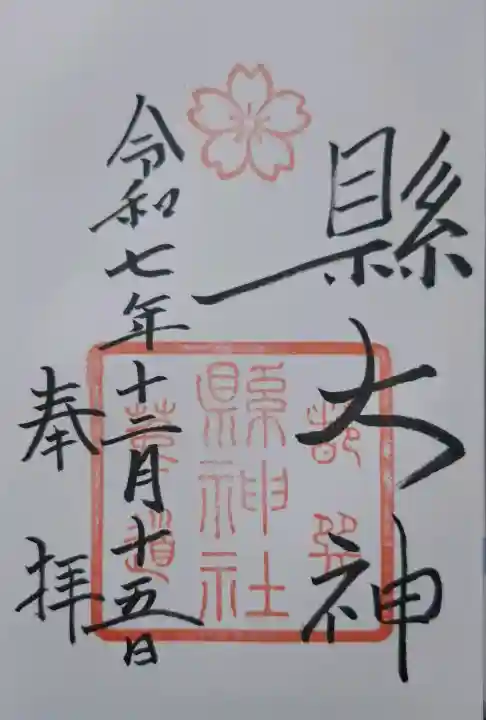 縣大神
令和七年十二月十五日
奉拝
縣神社
菟道